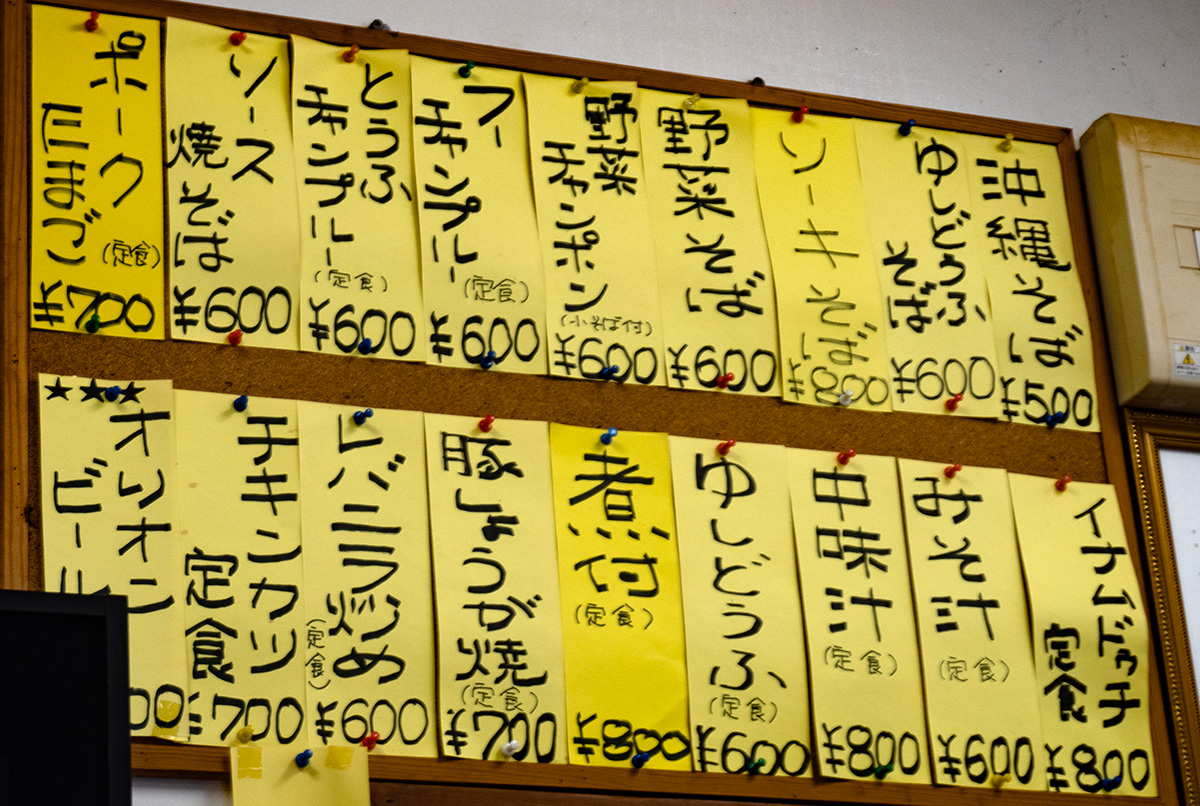 沖縄そば
¥500
ゆしどうふ
そば
¥600
ソーキそば
¥800
野菜そば
¥600
野菜
チャンポン
(小そば付)
¥600
フー
チャンプルー
(定食)
¥600
とうふ
チャンプルー
(定食)
¥600
ソース
焼そば
¥600
ポーク
たまご
(定食)
¥700
イナムドゥチ
定食
¥800
みそ汁
(定食)
¥600
中味汁
(定食)
¥800
ゆしどうふ
(定食)
¥600
煮付
(定食)
¥800
豚しょうが焼
(定食)
¥700
レバニラ炒め
(定食)
¥600
チキンカツ
定食
¥700
★★★
オリオン
ビール
00